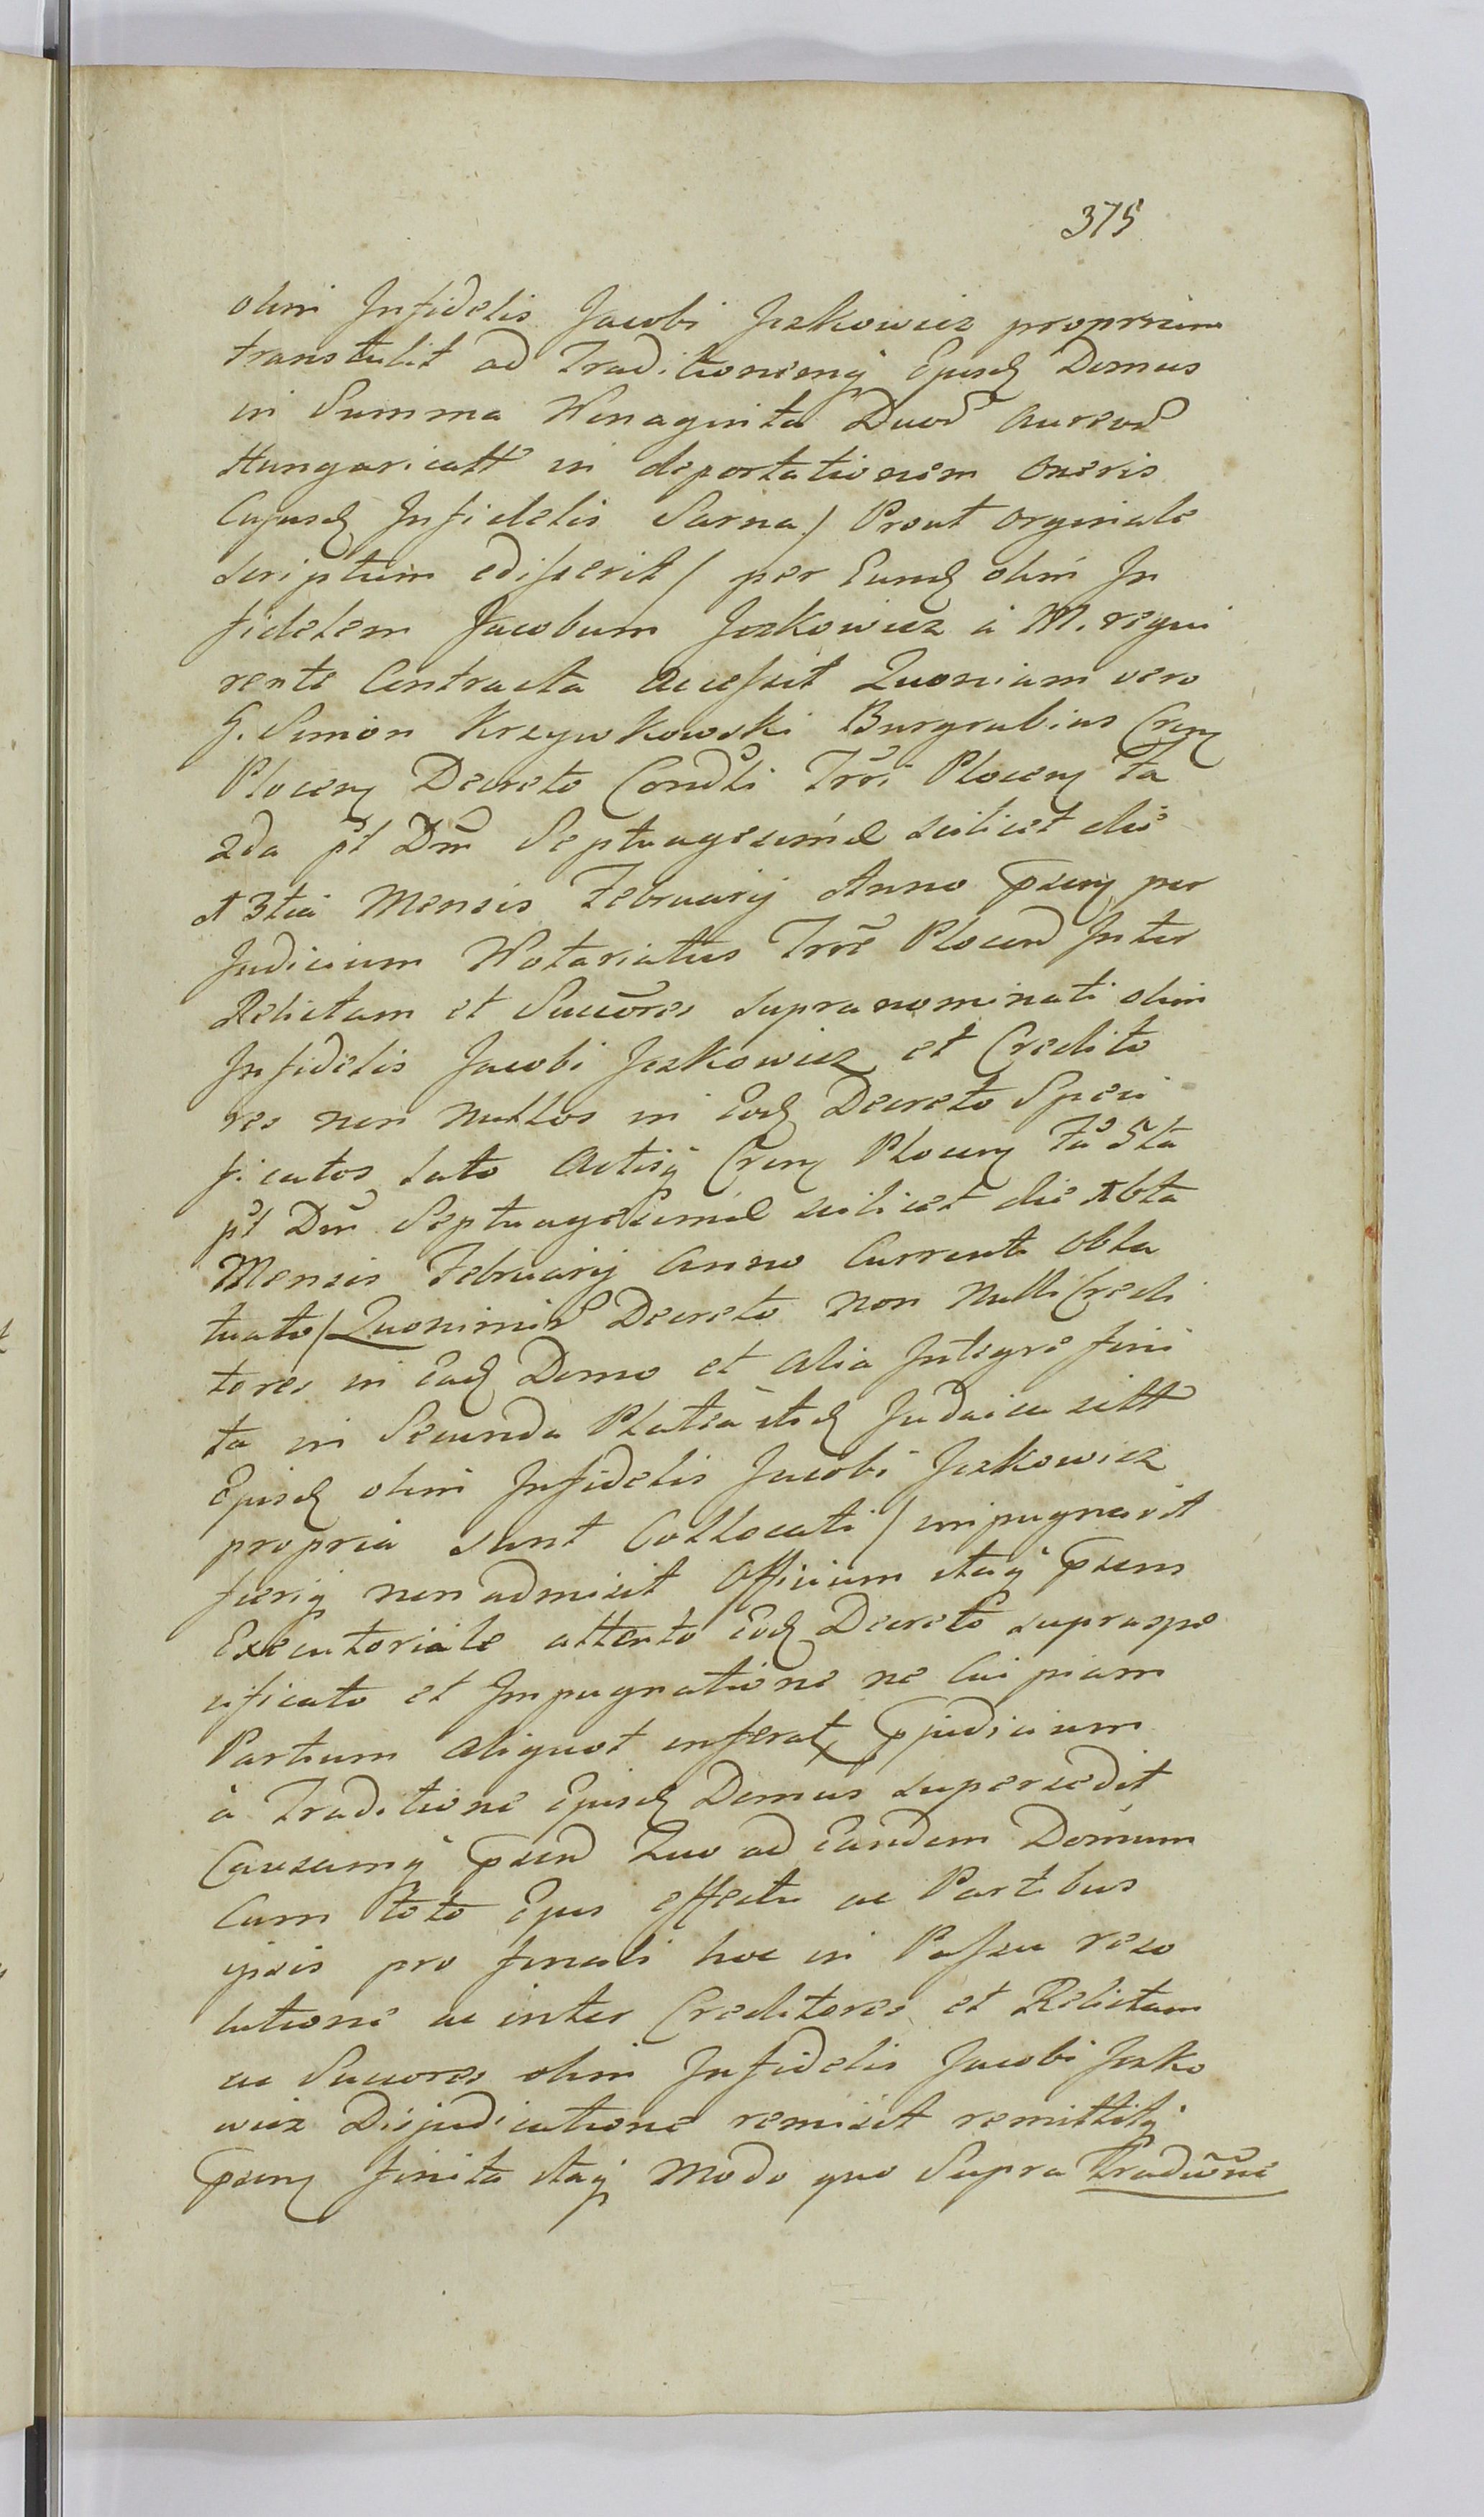 375
olim Infidelis Jacobi Jezkowicz proprium
transtulit ad Traditionemq Ejusd Domus
in Summa Nonaginta Duor Aureor
Hungaricall in deportationem Oneris
Cujusd Infidelis Sarna / Prout orginale
scriptum edisserit / per Eund olim In
fidelem Jacobum Jezkowicz a M. requi
rente Contracta accessit Quoniam vero
G. Simon Krzywkowski Burgrabius Cren
Plocen Decreto Condli Trri Plocen Fa
2da pt Dm Septuagesimæ scilicet die
13tia Mensis Februarij Anno Præsen per
Judicium Notariatus Trre Plocen Inter
Relictam et Succores supranominati olim
Infidelis Jacobi Jezkowicz et Credito
res non nullos in Eod Decreto Speci
ficatos lato Actisq Cren Plocen Fa 5ta
pt Dm Septuagesimæ scilicet die 16ta
Mensis Februarij Anno Currente obla
tuato / Quonimir Decreto non nulli Credi
tores in Ead Domo et alia Integre fini
ta in Secunda Platea itid Judaica sitt
Ejusd olim Infidelis Jacobi Jezkowicz
propria sunt Collocati / impugnavit
fieriq non admisit Officium itaq præsens
Executoriale attento Eod Decreto supraspe
cificato et Impugnatione ne Cuipiam
Partium aliquot inferat præjudicium
à Traditione Ejusd Domus supersedit
Causamq præsen Quo ad Eandem Domum
Cum toto Ejus effectu ac Partibus
ipsis pro finali hoc in Passu reso
lutione ac inter Creditores et Relictam
ac Succores olim Infidelis Jacobi Jezko
wicz Disjudicatione remisit remittitq
præsen finita itaq modo quo Supra Tradiōne